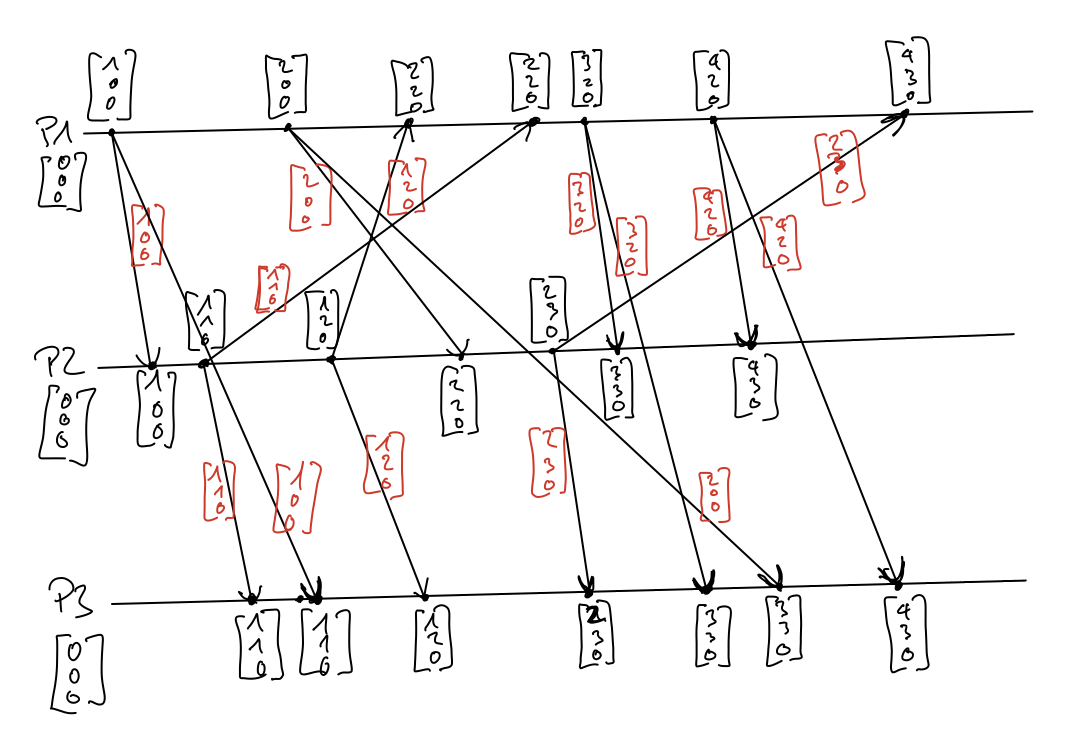 [1 0 0]
[2 0 0]
[2 2 0]
[2 2 0]
[3 2 0]
[4 2 0]
[4 3 0]
P1
[0 0 0]
[1 0 0]
[2 0 0]
[1 2 0]
[3 2 0]
[3 2 0]
[4 2 0]
[4 2 0]
[2 3 0]
[1 1 0]
[1 1 0]
[1 2 0]
[2 3 0]
P2
[0 0 0]
[1 0 0]
[2 2 0]
[3 3 0]
[4 3 0]
[1 1 0]
[1 0 0]
[1 2 0]
[2 3 0]
[2 0 0]
P3
[0 0 0]
[1 1 0]
[1 1 0]
[1 2 0]
[2 3 0]
[3 3 0]
[3 3 0]
[4 3 0]